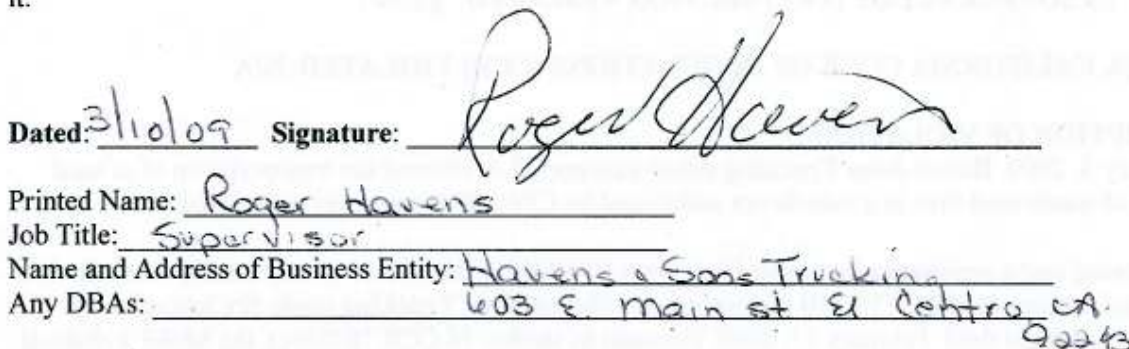 it.
Dated: 3/10/09 Signature: Roger Havens
Printed Name: Roger Havens
Job Title: Supervisor
Name and Address of Business Entity: Havens & Sons Trucking
Any DBAs: 603 E Main st El Centro, CA.
92243